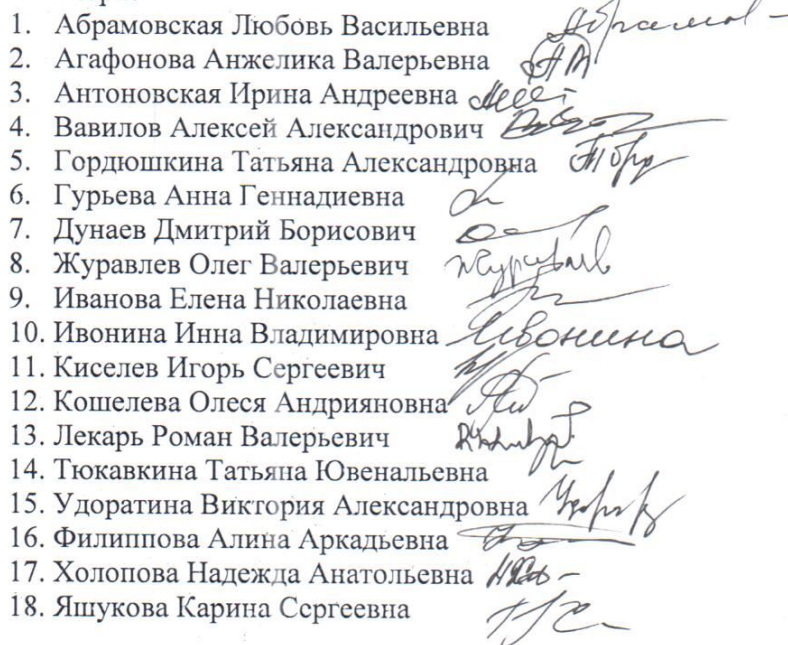 1. Абрамовская Любовь Васильевна
2. Агафонова Анжелика Валерьевна
3. Антоновская Ирина Андреевна
4. Вавилов Алексей Александрович
5. Гордюшкина Татьяна Александровна
6. Гурьева Анна Геннадиевна
7. Дунаев Дмитрий Борисович
8. Журавлев Олег Валерьевич
9. Иванова Елена Николаевна
10. Ивонина Инна Владимировна Ивонина
11. Киселев Игорь Сергеевич
12. Кошелева Олеся Андрияновна
13. Лекарь Роман Валерьевич
14. Тюкавкина Татьяна Ювенальевна
15. Удоратина Виктория Александровна
16. Филиппова Алина Аркадьевна
17. Холопова Надежда Анатольевна
18. Яшукова Карина Сергеевна